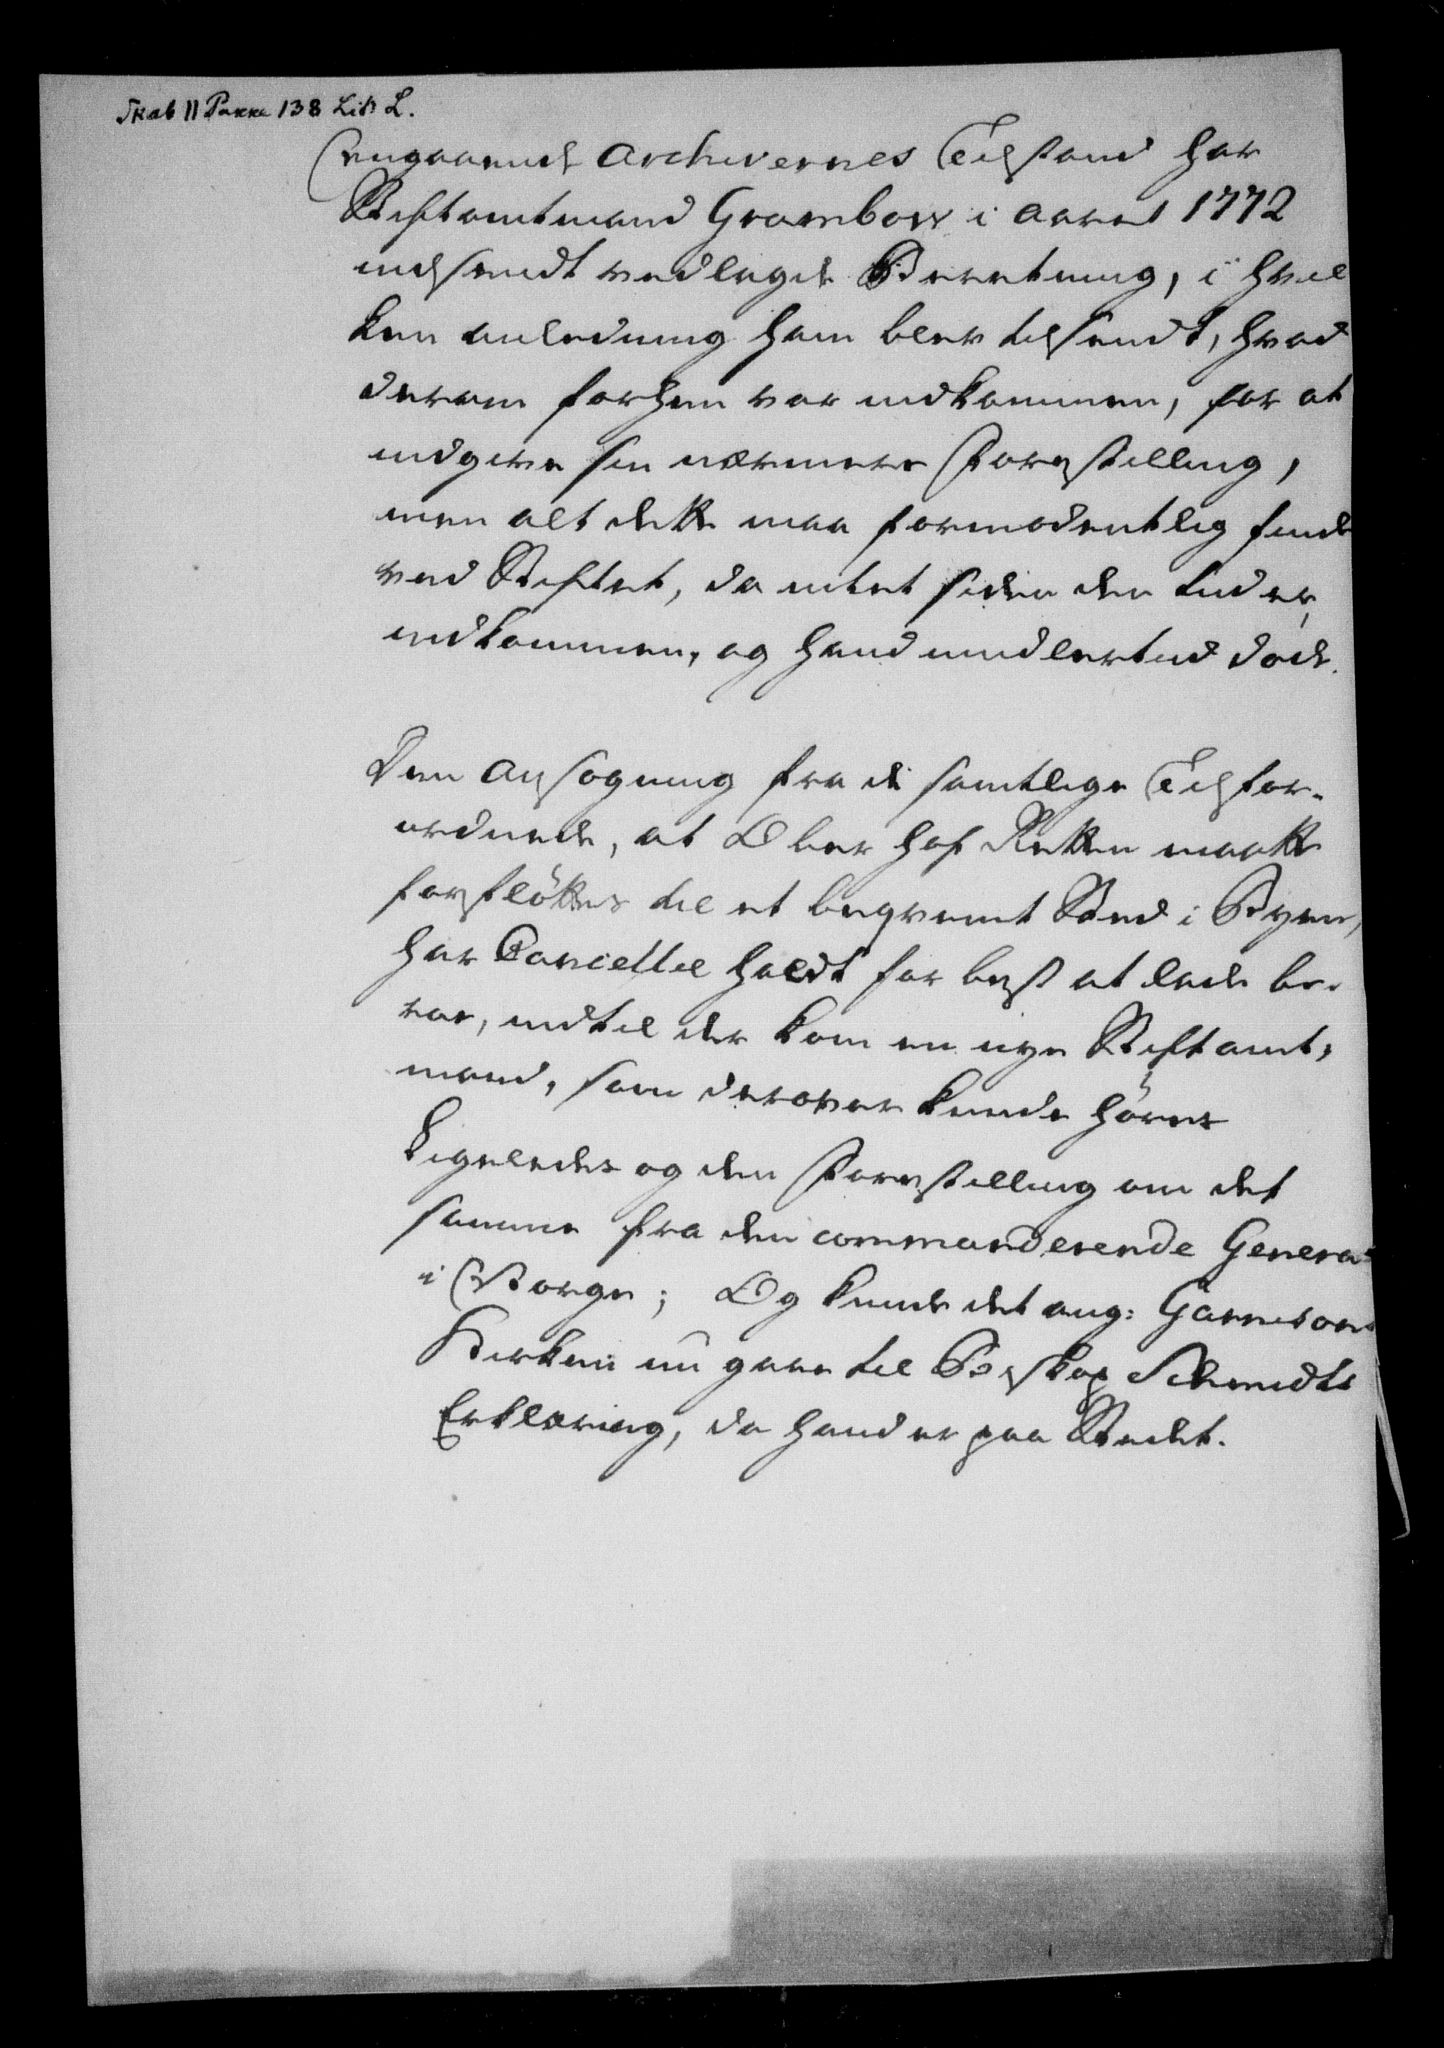 Skab 11 Pakke 138 Litr L.
Angaaende Archivernes Tilstand har
Stiftamtmand Grambow i Aaret 1772
indsendt vedlagde Beretning, i hvil
ken anledning ham blev tilsendt, hvad
derom forhen var indkommen, for at
indgive sin nærmere Forestilling,
men alt dette maa formodentlig finde
ved Stiftet, da intet siden den tid er
indkommen, og hand imidlertid döde.
Den Ansögning fra de samtlige Tilfor-
ordnede, at Ober Hof Retten maatte
forflöttes til et beqvemt Sted i Byen,
har Cancellie holdt for best at lade be-
roe, indtil der kom en nye Stiftamt,
mand, som derover kunde höres
Ligeledes og den Forestilling om det
samme fra den commanderende General
i Norge; Og kunde det ang: Garnisons
Kirken nu gaae til Biskop Schmidts
Erklæring, da hand er paa Stedet.